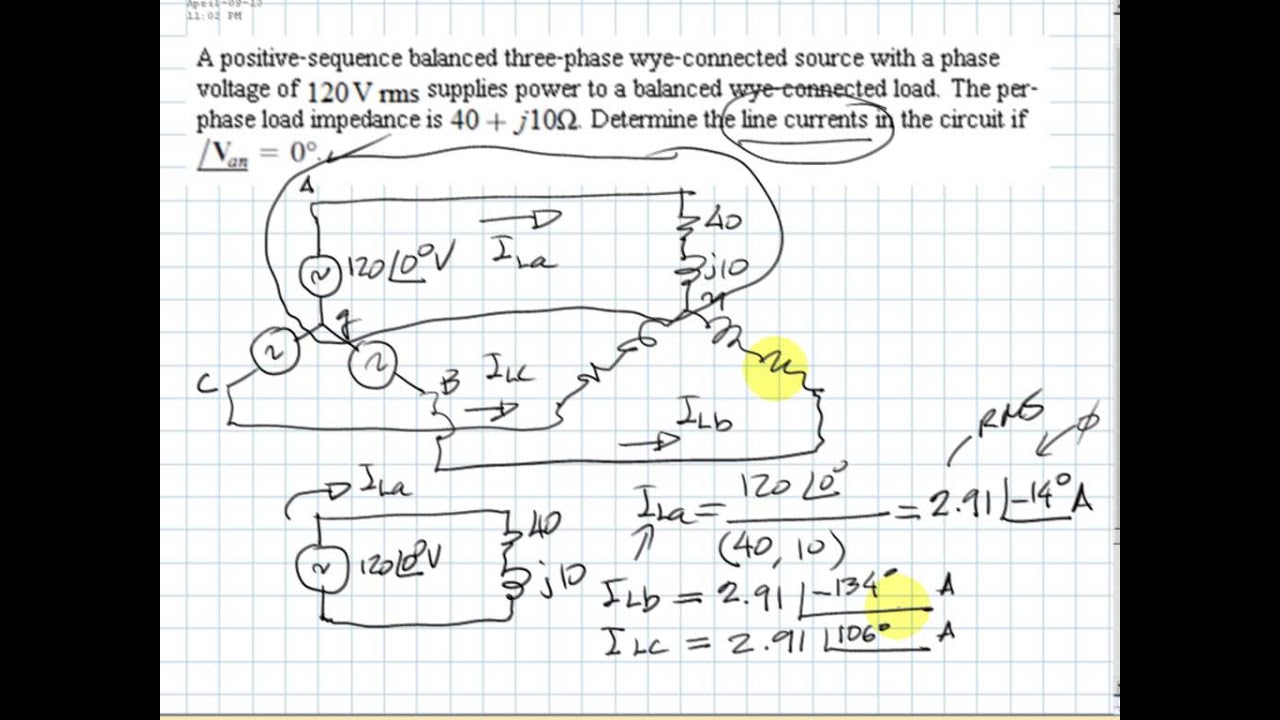 April-09-13
11:02 PM
A positive-sequence balanced three-phase wye-connected source with a phase
voltage of 120 V rms supplies power to a balanced wye-connected load. The per-
phase load impedance is 40 + j10Ω. Determine the line currents in the circuit if
/Van = 0°.
A
40
120∠0°V
ILa
j10
n
C
B
ILc
ILb
RMS
φ
ILa
120∠0°
ILa = = 2.91∠-14° A
40
(40, 10)
120∠0°V
j10
ILb = 2.91∠-134° A
ILC = 2.91∠106° A